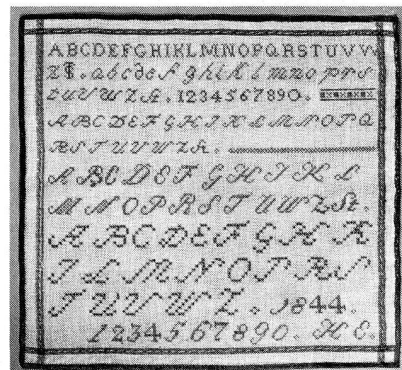 ABCDEFGHIKLMNOPQRSTUVW
Z¶.abcdefghiklmnoprs
tuvwz&.1234567890.
ABCDEFGHIKLMNOPQ
RSTUVWZ&.
ABCDEFGHIKL
MNOPRSTUWZ&.
ABCDEFGHK
ILMNOPRS
TUVWZ. 1844.
1234567890. HE.